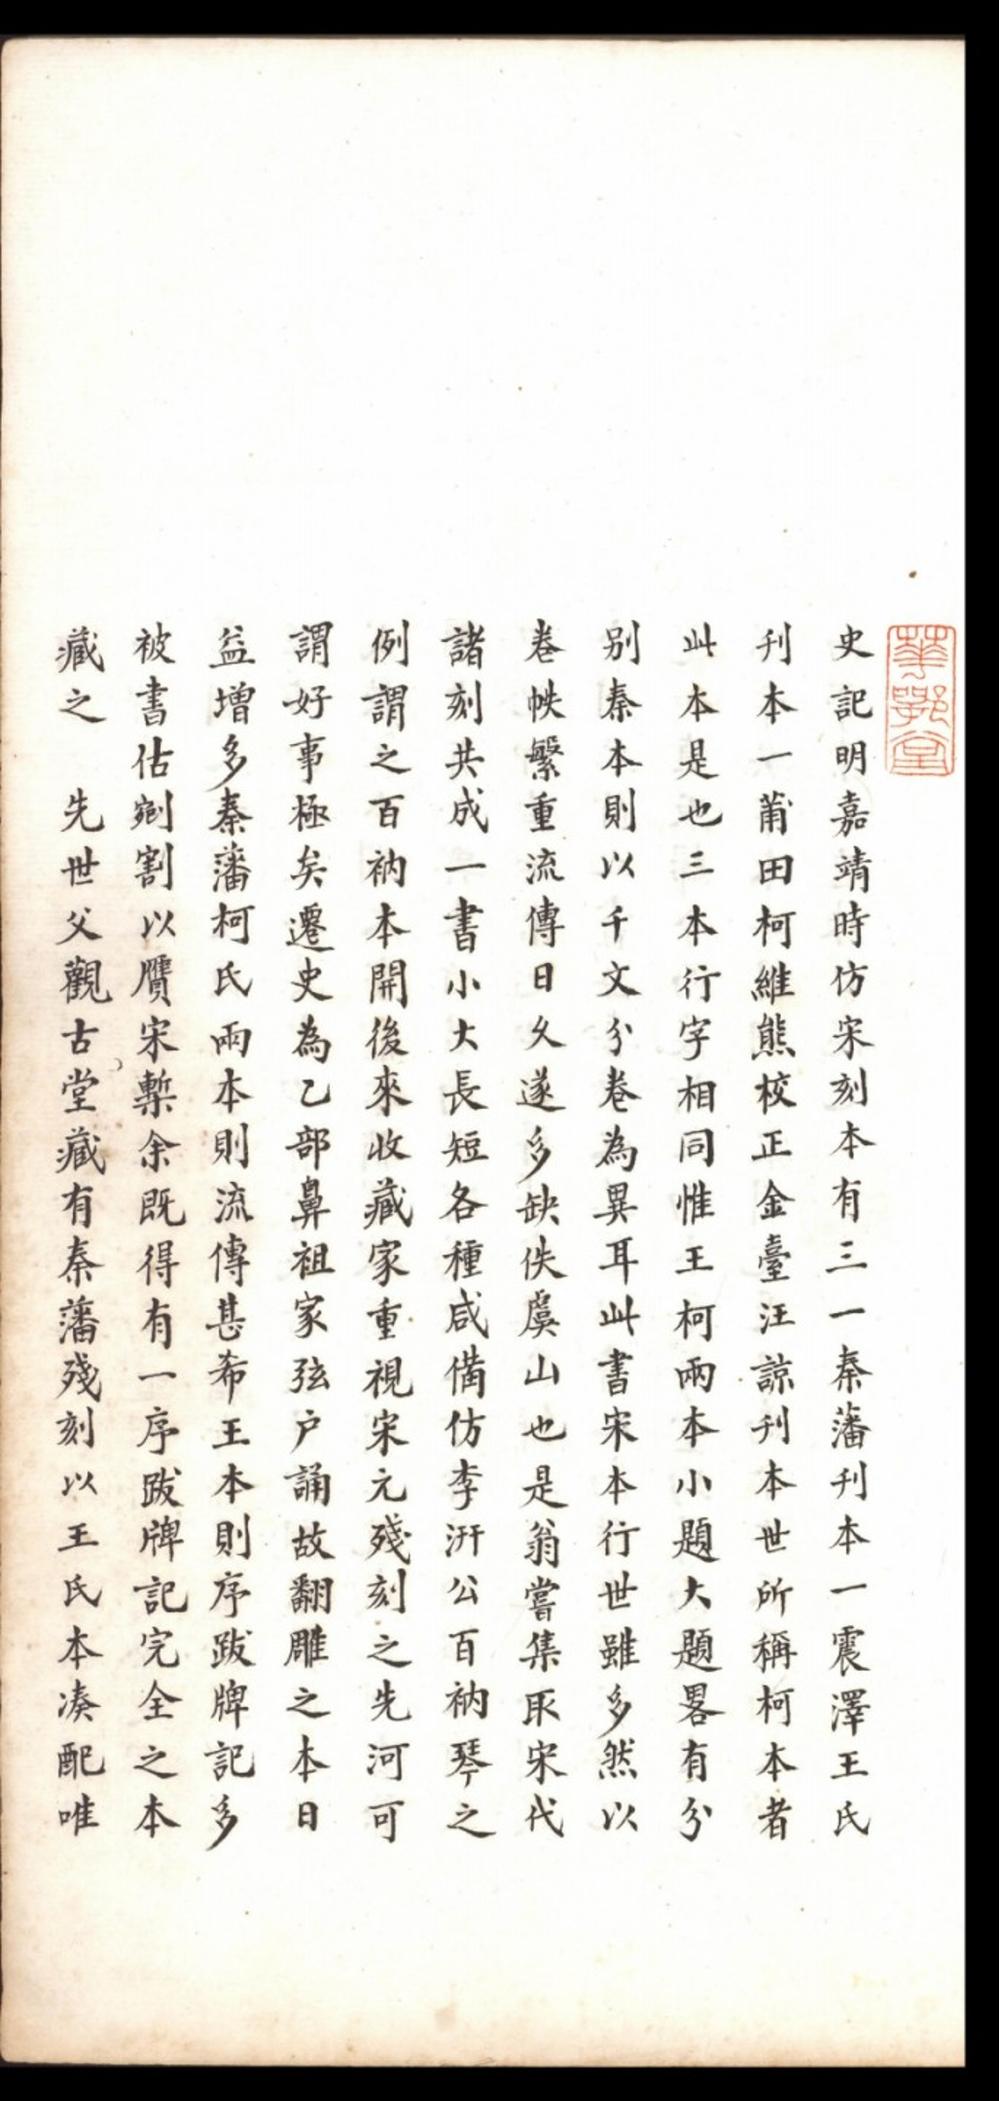 華鄂堂
史記明嘉靖時仿宋刻本有三一秦藩刊本一震澤王氏
刊本一莆田柯維熊校正金臺汪諒刊本世所稱柯本者
此本是也三本行字相同惟王柯兩本小題大題畧有分
别秦本則以千文分卷為異耳此書宋本行世雖多然以
卷帙繁重流傳日久遂多缺佚虞山也是翁嘗集取宋代
諸刻共成一書小大長短各種咸備仿李汧公百衲琴之
例謂之百衲本開後來收藏家重視宋元殘刻之先河可
謂好事極矣遷史為乙部鼻祖家弦户誦故翻雕之本日
益增多秦藩柯氏兩本則流傳甚希王本則序跋牌記多
被書估剜割以贋宋槧余既得有一序跋牌記完全之本
藏之　先世父觀古堂藏有秦藩殘刻以王氏本凑配唯